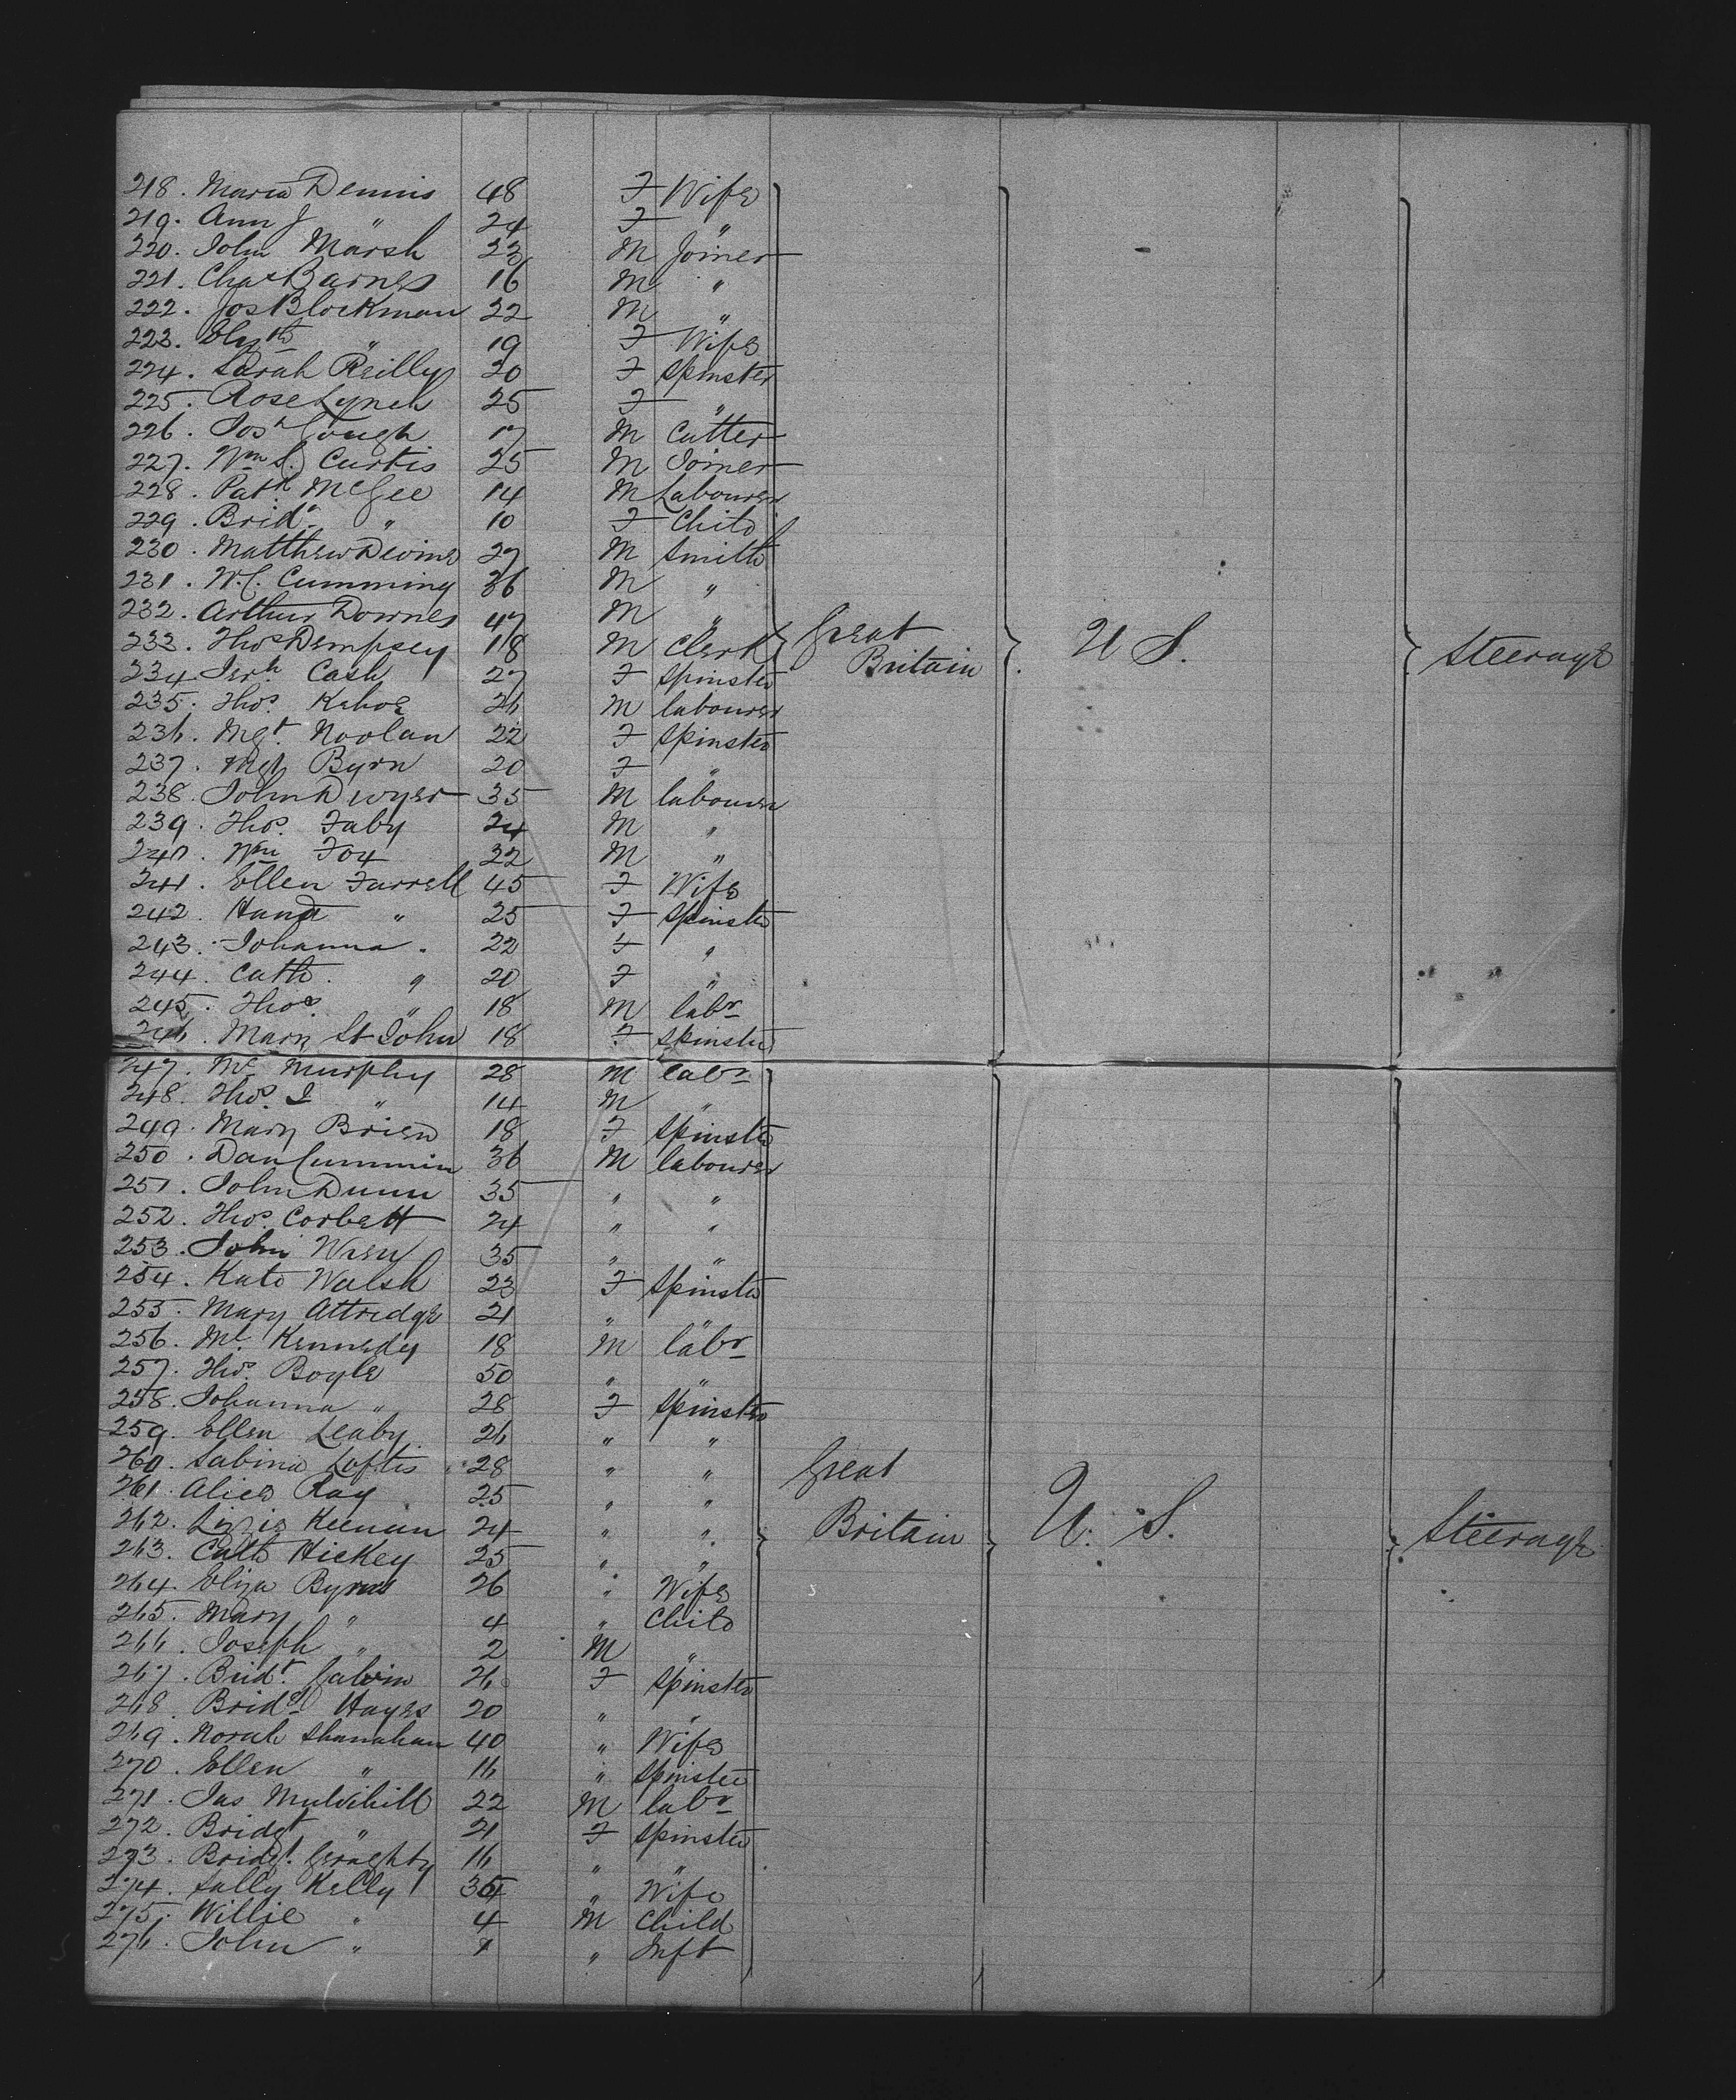 218. Maria Dennis 48 F Wife
219. Ann J " 24 F "
220. John Marsh 23 M Joiner
221. Chas Barnes 16 M "
222. Jos Blockman 22 M "
223. Elizth " 19 F Wife
224. Sarah Reilly 20 F Spinster
225. Rose Lynch 25 F "
226. Josh Gough 17 M Cutter
227. Wm S. Curtis 25 M Joiner
228. Patk McGee 14 M Labourer
229. Bridt " 10 F Child
230. Matthew Devine 27 M Smith
231. W.C. Cumming 36 M "
232. Arthur Downes 47 M "
233. Thos Dempsey 18 M Clerk Great Britain U S. Steerage
234 Jerh Cash 27 F Spinster
235. Thos. Kehoe 26 M labourer
236. Mgt. Noolan 22 F Spinster
237. Mgt Byrn 20 F "
238. John Dwyer 35 M labourer
239. Thos. Faby 24 M "
240. Wm Fox 22 M "
241. Ellen Farrell 45 F Wife
242. Hana " 25 F Spinster
243. Johanna " 22 F "
244. Cath. " 20 F "
245. Thos. " 18 M labr
246. Mary St John 18 F Spinster
247. Ml Murphy 28 M labr
248. Thos. J " 14 M "
249. Mary Brien 18 F Spinster
250. Dan Cummin 36 M labourer
251. John Dunn 35 " "
252. Thos. Corbett 24 " "
253. John Wren 35 " "
254. Kate Walsh 23 F Spinster
255. Mary Attredge 21 " "
256. Ml. Kennedy 18 M labr
257. Thos. Boyle 50 " "
258. Johanna " 28 F Spinster
259. Ellen Leahy 26 " "
260. Sabina Loftis 28 " " Great
261. Alice Ray 25 " "
262. Lizzie Keenan 24 " " Britain U. S. Steerage
263. Cath Hickey 25 " "
264. Eliza Byrne 26 " Wife
265. Mary " 4 " Child
266. Joseph " 2 M "
267. Bridt. Galvin 26 F Spinster
268. Bridt Hayes 20 " "
269. Norah Shanahan 40 " Wife
270. Ellen " 16 " Spinster
271. Jas Mulvihill 22 M labr
272. Bridgt " 21 F Spinster
273. Bridgt. Geraghty 16 " "
274. Sally Kelly " Wife
275. Willie " 4 M Child
276. John " 1 " Inft